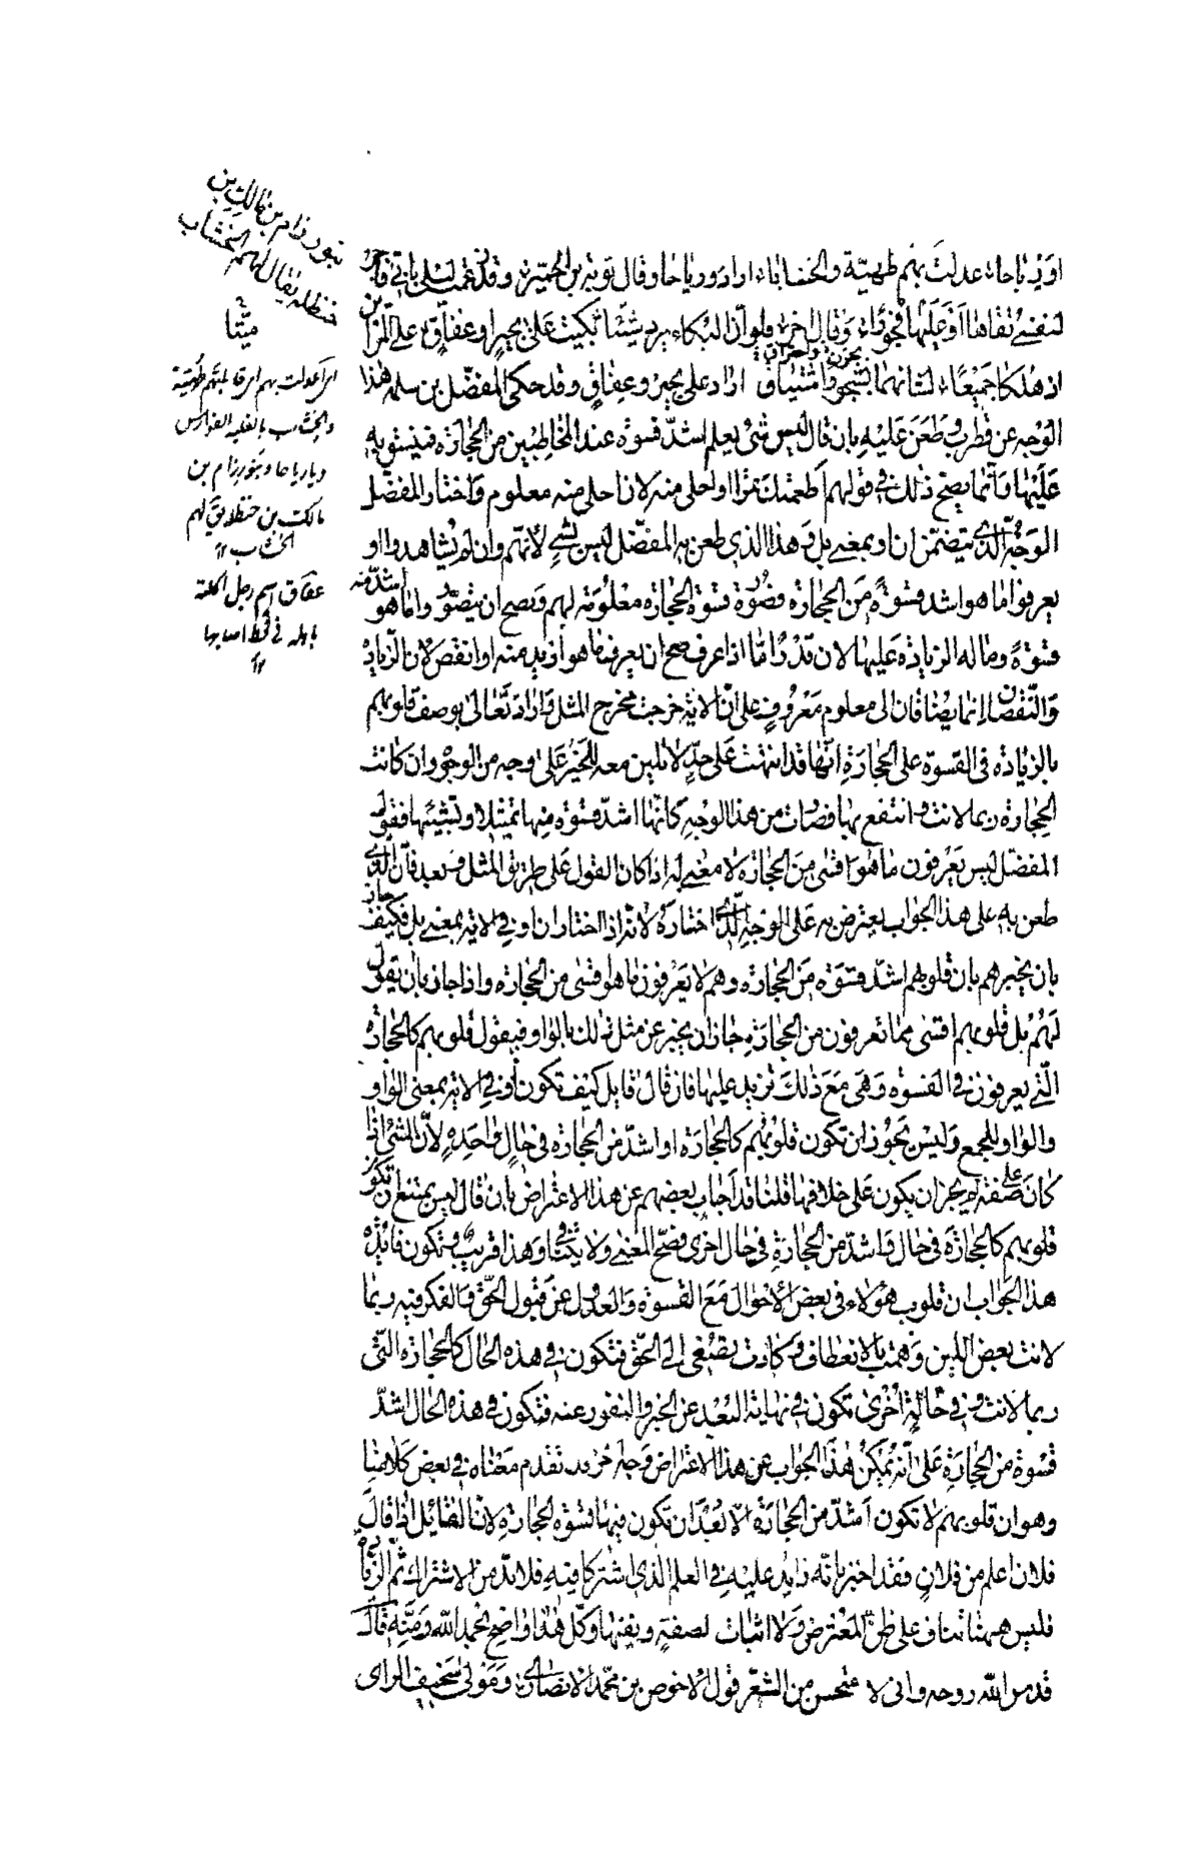 او رياحا عدلت بهم طهية والخشابا اراد ورياحا وقال توبة بن الحمير وقد زعمت ليلى باني فاجر
لنفسي تقاها او عليها فجورها وقال اخر فلو ان البكاء يرد شيئا بكيت على بجير او عفاق على المرأين
اذ هلكا جميعا لشانهما بشجو واشتياق اراد على بجير وعفاق وقد حكى المفضل بن سلمه هذا
الوجه عن قطرب وطعن عليه بان قال ليس شئ يعلم اشد قسوة عند المخاطبين من الحجارة فينسق به
عليها وانما يصح ذلك في قولهم اطعمتك تمرا او احلى منه لان احلى منه معلوم واختار المفضل
الوجه الذي يتضمن ان او بمعنى بل وهذا الذي طعن به المفضل ليس بشئ لانهم وان لم يشاهدوا او
يعرفوا ما هو اشد قسوة من الحجارة فصورة قسوة الحجارة معلومة لهم ويصح ان يتصوروا ما هو اشد منه
قسوة وما له الزيادة عليها لان قدرا ما اذا عرف صح ان يعرف ما هو ازيد منه او انقص لان الزيادة
والنقصان انما يضافان الى معلوم معروف على ان الاية خرجت مخرج المثل واراد تعالى بوصف قلوبهم
بالزيادة في القسوة على الحجارة انها قد انتهت على حد لا تلين معه للخير على وجه من الوجوه وان كانت
الحجارة ربما لانت وانتفع بها فصارت من هذا الوجه كانها اشد قسوة منها تمثيلا وتشبيها فقول
المفضل ليس يعرفون ما هو اقسى من الحجارة لا معنى له اذا كان القول على طريق المثل وبعد فان الذي
طعن به على هذا الجواب يعترض به على الوجه الذي اختاره لانه اذا اختار ان او في الاية بمعنى بل فكيف جاز
بان يخبرهم بان قلوبهم اشد قسوة من الحجارة وهم لا يعرفون ما هو اقسى من الحجارة واذا جاز بان يقول
لهم بل قلوبهم اقسى مما تعرفون من الحجارة جاز ان يخبر عن مثل ذلك بالواو فيقول قلوبهم كالحجارة
التي يعرفون في القسوة وهي مع ذلك تزيد عليها فان قال قايل كيف تكون او في الاية بمعنى الواو
والواو للجمع وليس يجوز ان تكون قلوبهم كالحجارة او اشد من الحجارة في حال واحدة لان الشئ اذا
كان على صفة لم يجز ان يكون على خلافها قلنا قد اجاب بعضهم عن هذا الاعتراض بان قال ليس يمتنع ان تكون
قلوبهم كالحجارة في حال واشد من الحجارة في حال اخرى فصح المعنى ولا يتنافى وهذا قريب وتكون فائدة
هذا الجواب ان قلوب هؤلاء في بعض الاحوال مع القسوة والعدول عن قبول الحق والفكر فيه ربما
لانت بعض اللين وهمت بالانعطاف وكادت تصغي الى الحق فتكون في هذه الحال كالحجارة التي
ربما لانت وفي حالة اخرى تكون في نهاية البعد عن الخير والنفور عنه فتكون في هذه الحال اشد
قسوة من الحجارة على انه يمكن هذا الجواب عن هذا الاعتراض وجه اخر قد تقدم معناه في بعض كلامنا
وهو ان قلوبهم لا تكون اشد من الحجارة الا بعد ان تكون فيها قسوة الحجارة لان القائل اذا قال
فلان اعلم من فلان فقد اخبر بانه زايد عليه في العلم الذي اشتركا فيه فلا بد من الاشتراك ثم الزيادة
فليس ههنا تناف على ظن المعترض ولا اثبات لصفة ونفيها وكل هذا واضح بحمد الله ومنه قال
قدس الله روحه واني لا ستحسن من الشعر قول الاحوص بن محمد الانصاري ومولى سخيف الراى
بحزن واحتراق
بنو رزام بن مالك بن
حنظلة يقال لهم الخشاب
ميتا
والخشاب
ويا رياحا وبنو رزام بن
مالك بن حنظلة يق لهم
الخشاب ١٢
عفاق اسم رجل اكلته
باهله في قحط اصابها
١٢